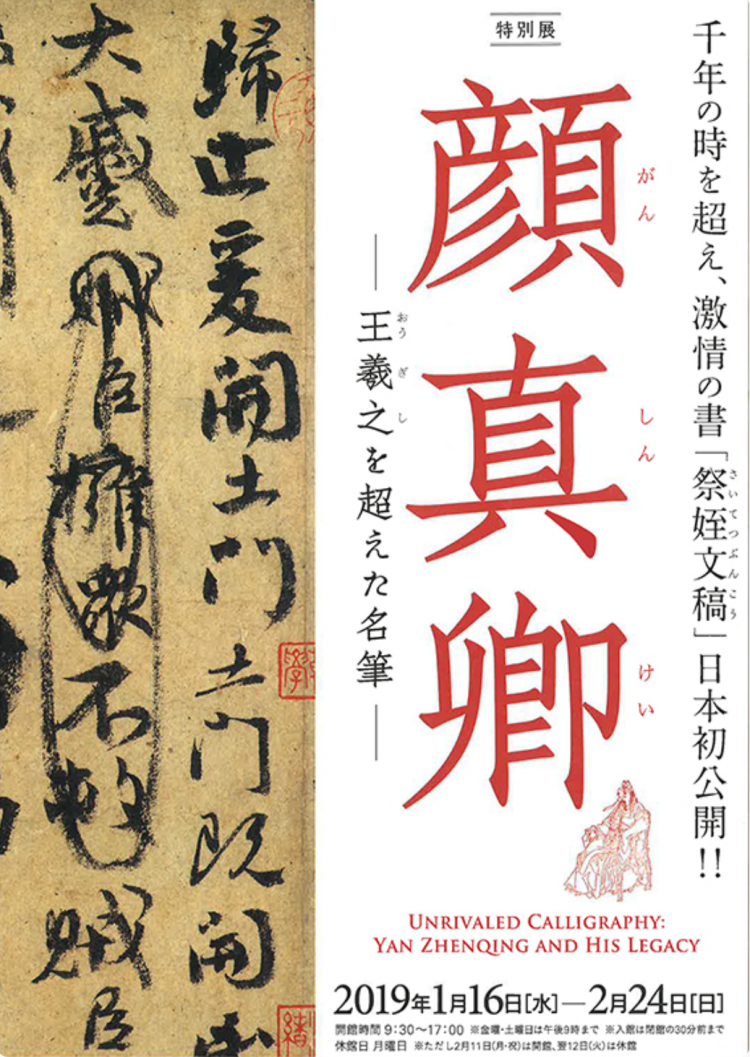 特別展
千年の時を超え、激情の書「祭姪文稿」日本初公開!!
さいてつぶんこう
顔真卿
がんしんけい
―王羲之を超えた名筆―
おうぎし
歸止爰開土門土門既開
大蹙賊臣擁衆不救賊臣
UNRIVALED CALLIGRAPHY:
YAN ZHENQING AND HIS LEGACY
2019年1月16日[水]―2月24日[日]
開館時間 9:30~17:00 ※金曜・土曜日は午後9時まで ※入館は閉館の30分前まで
休館日 月曜日 ※ただし2月11日(月・祝)は開館、翌12日(火)は休館